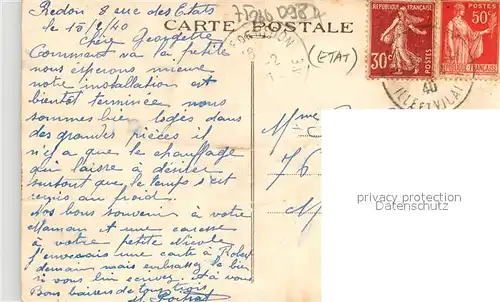 Redon 8 rue des Etats
le 15/2/40
CARTE POSTALE
Chère Georgette
Comment va la petite
nous espérons mieux
notre installation est
bientôt terminée nous
sommes bien logés dans
des grandes pièces il
n'y a que le chauffage
qui laisse à désirer
surtout que le temps s'est
remis au froid.
Nos bons souvenir à votre
Maman et une caresse
à votre petite Nicole
j'envoais une carte à Robert
demain mais embrassez le bien
si vous lui écrivez. et à vous
Bons baisers de tous trois
(ETAT)
REPUBLIQUE FRANÇAISE
30c
POSTES
50c
POSTES
REPUBLIQUE FRANÇAISE
40
ILLE ET VILAI
Mme
76
M
privacy protection
Datenschutz